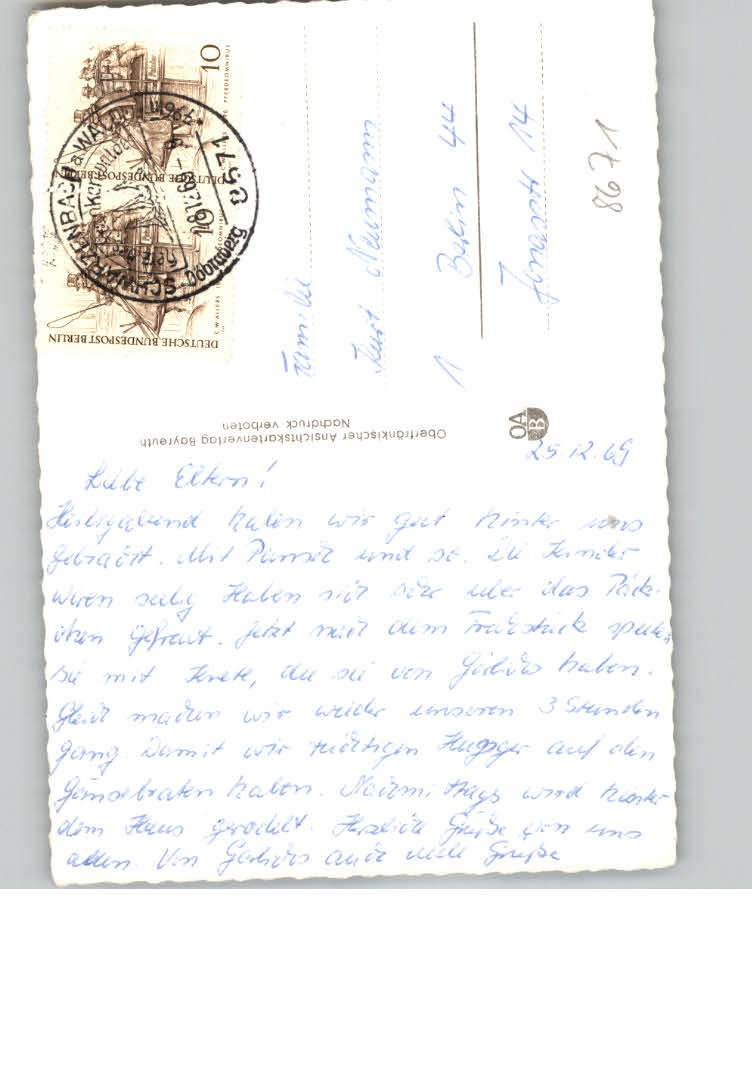 10
PFERDEOMNIBUS
DEUTSCHE BUNDESPOST BERLIN
C.W. ALLERS
DEUTSCHE BUNDESPOST BERLIN
SCHWARZENBACH a WALD
8671
Döbraberg
Familie
Kurt Neumann
1 Berlin 44
14
8671
Oberfränkischer Ansichtskartenverlag Bayreuth
Nachdruck verboten
OA
B
25.12.69
Liebe Eltern!
Heiligabend haben wir gut hinter uns
gebracht. Mit Punsch und so. Die Kinder
waren selig Haben sich sehr über das Päck-
chen gefreut. Jetzt nach dem Frühstück spielen
sie mit Knete, die sie von haben.
Gleich machen wir wieder unseren 3 Stunden
gang. Damit wir richtigen Hunger auf den
Gänsebraten haben. Nachmittags wird hinter
dem Haus gerodelt. Herzliche Grüße von uns
allen. Von auch viele Grüße